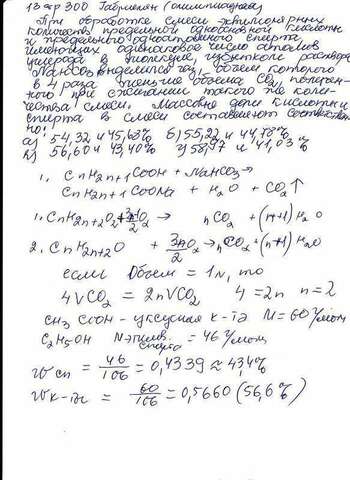 13 стр 300 Габриелян (олимпиадная)
При обработке смеси эквимолярных
количеств предельной одноосновной кислоты
и предельного одноатомного спирта
имеющих одинаковое число атомов
углерода в молекуле, избытком раствора
NaHCO3 выделился газ, объём которого
в 4 раза меньше объёма CO2, получен-
ного при сжигании такого же коли-
чества смеси. Массовые доли кислоты и
спирта в смеси составляют соответствен-
но:
а) 54,32 и 45,68% б) 55,22 и 44,78%
в) 56,60 и 43,40% г) 58,97 и 41,03%
1, CnH2n+1COOH + NaHCO3 →
CnH2n+1COONa + H2O + CO2↑
1. CnH2n+2O2 + 3n/2 O2 → nCO2 + (n+1)H2O
2. CnH2n+2O + 3n/2 O2 → nCO2 + (n+1)H2O
если Объём = 1л, то
4VCO2 = 2nVCO2 4=2n n=2
CH3COOH - уксусная к-та M=60 г/моль
C2H5OH этилов. спирта = 46 г/моль
Wсп = 46/106 = 0,4339 ≈ 43,4%
Wк-ты = 60/106 = 0,5660 (56,6%)